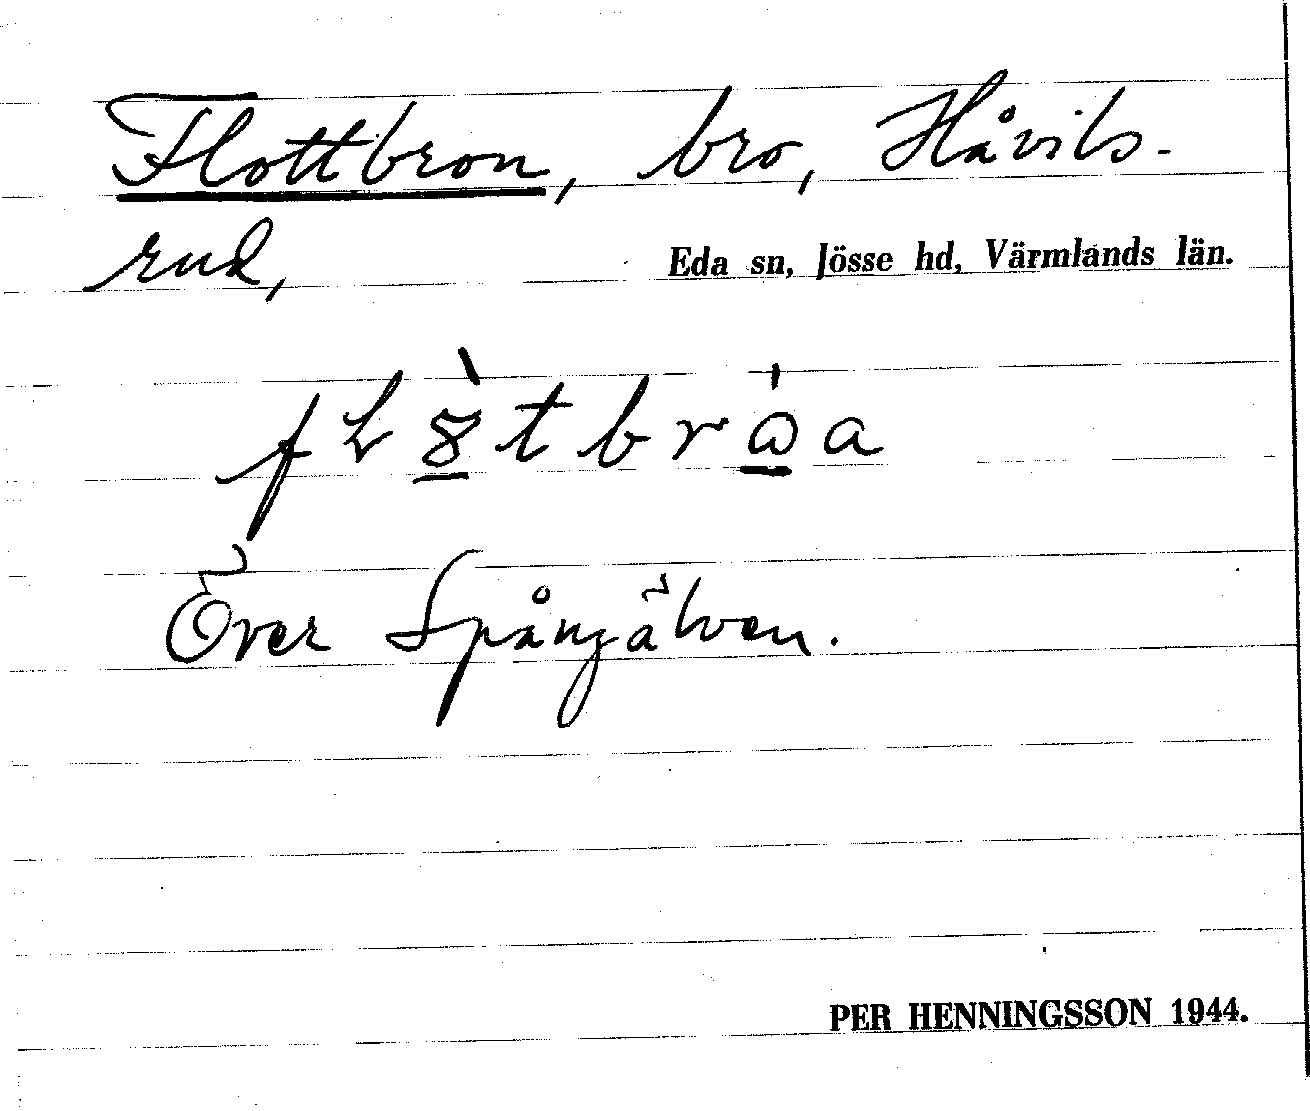 Flottbron, bro, Håvils-
rud,
Eda sn, Jösse hd, Värmlands län.
Över Spångälven.
PER HENNINGSSON 1944.